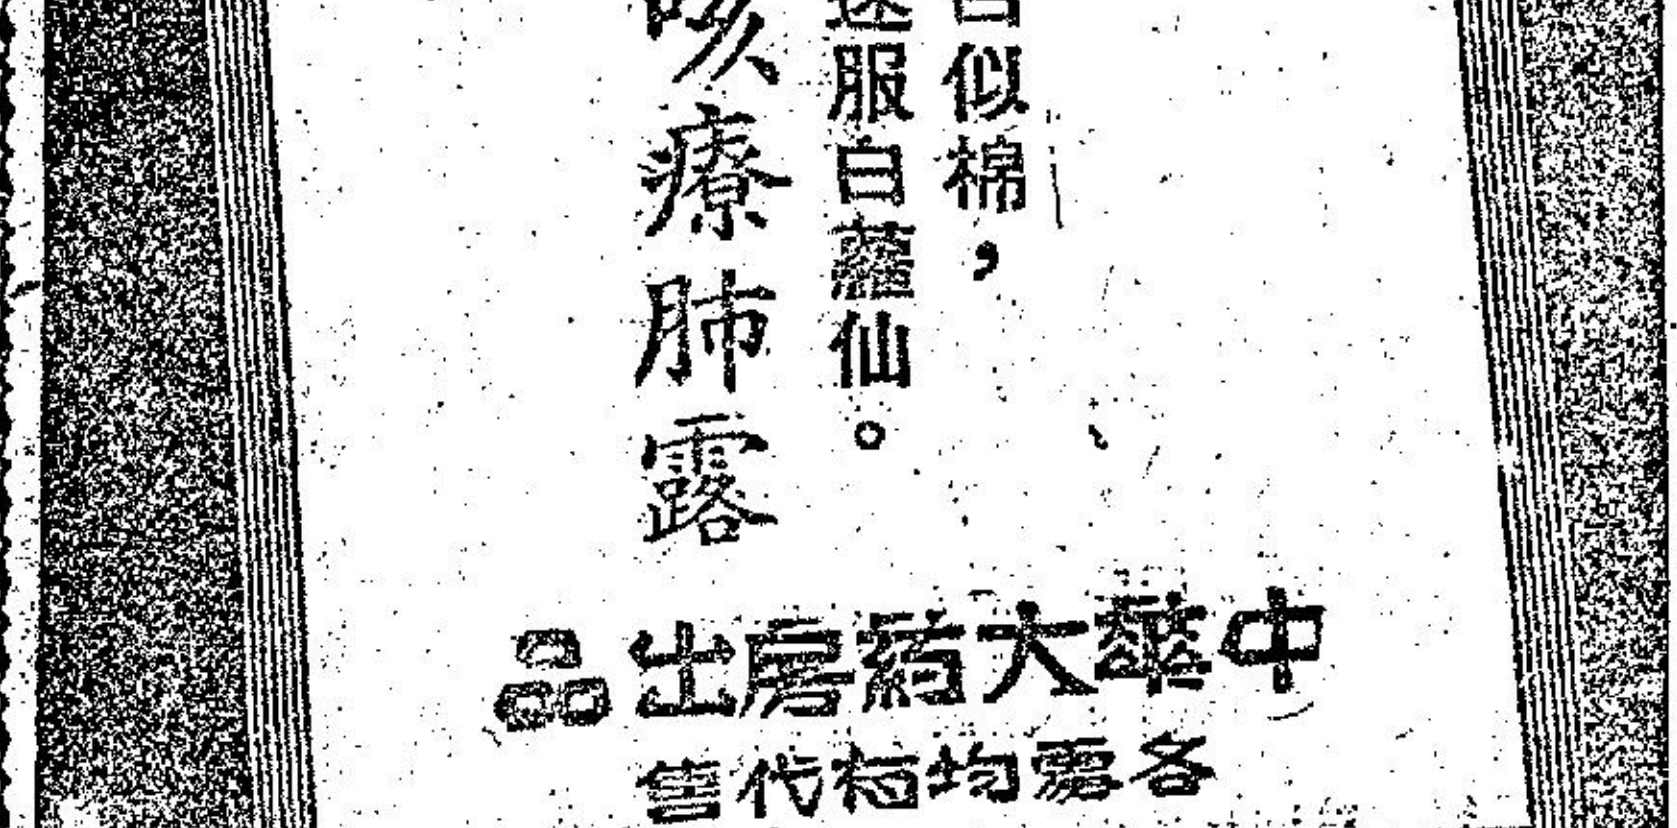 白似棉，
速服白蘿仙。
咳療肺露
中華大葯房出品
各處均有代售